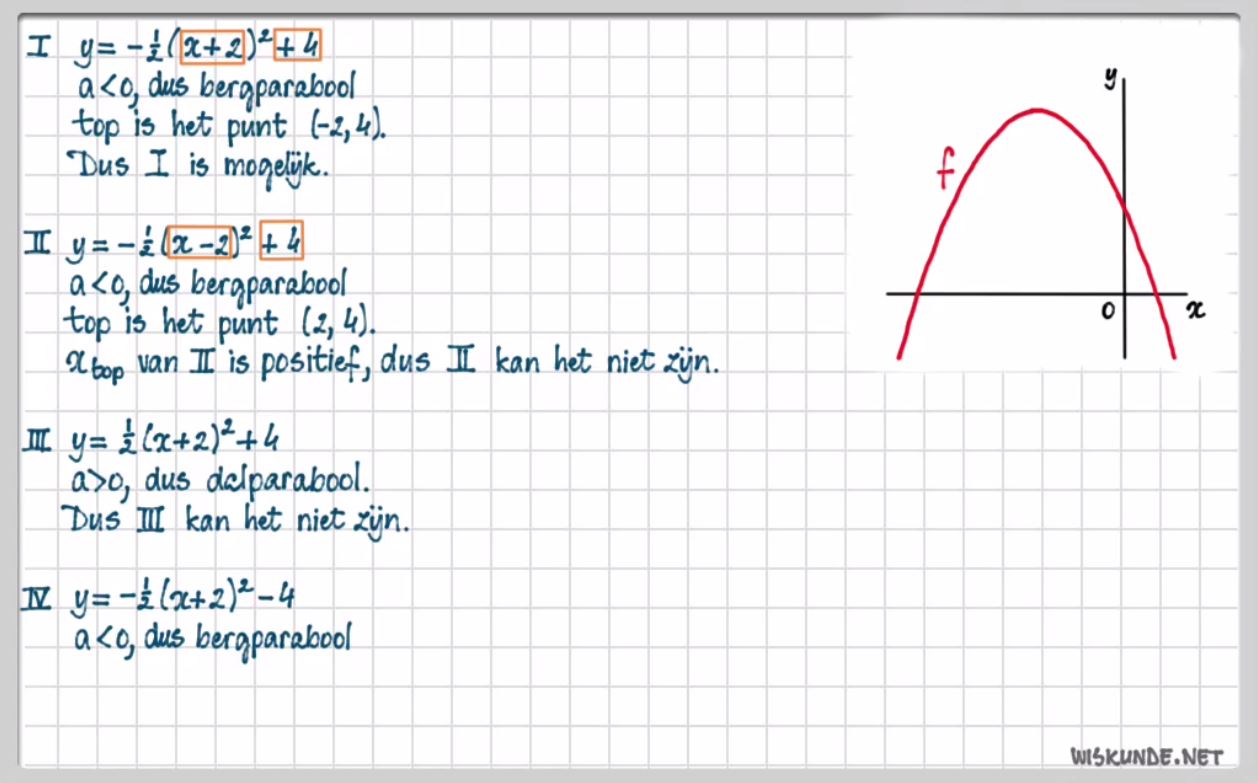 I y = -½(x+2)² + 4
a<0, dus bergparabool
top is het punt (-2, 4).
Dus I is mogelijk.
II y = -½(x-2)² + 4
a<0, dus bergparabool
top is het punt (2, 4).
xtop van II is positief, dus II kan het niet zijn.
III y = ½(x+2)² + 4
a>0, dus dalparabool.
Dus III kan het niet zijn.
IV y = -½(x+2)² - 4
a<0, dus bergparabool
y
f
0
x
WISKUNDE.NET